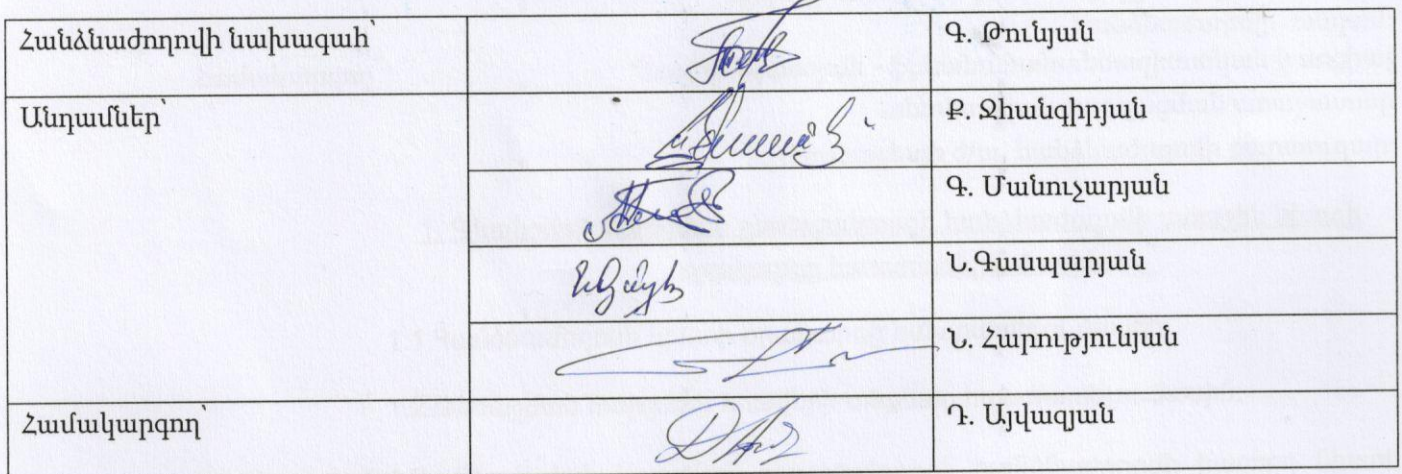 Հանձնաժողովի նախագահ՝ Գ. Թունյան
Անդամներ՝ Ք. Ջհանգիրյան
Գ. Մանուչարյան
Ն.Գասպարյան
Ն. Հարությունյան
Համակարգող՝ Դ. Այվազյան